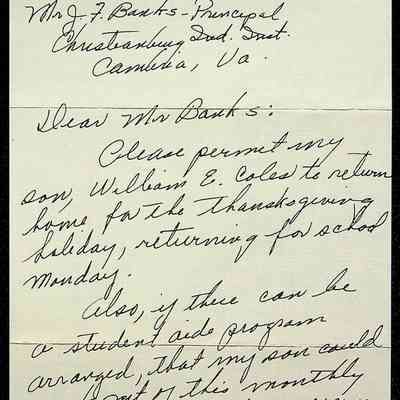 Mr J. F. Banks - Principal
Christianburg Ind. Inst.
Cambria, Va.
Dear Mr Banks:
Please permit my
son, William E. Coles to return
home for the thanksgiving
holiday, returning for school
Monday.
Also, if there can be
a student aide program
arranged, that my son could
out of this monthly